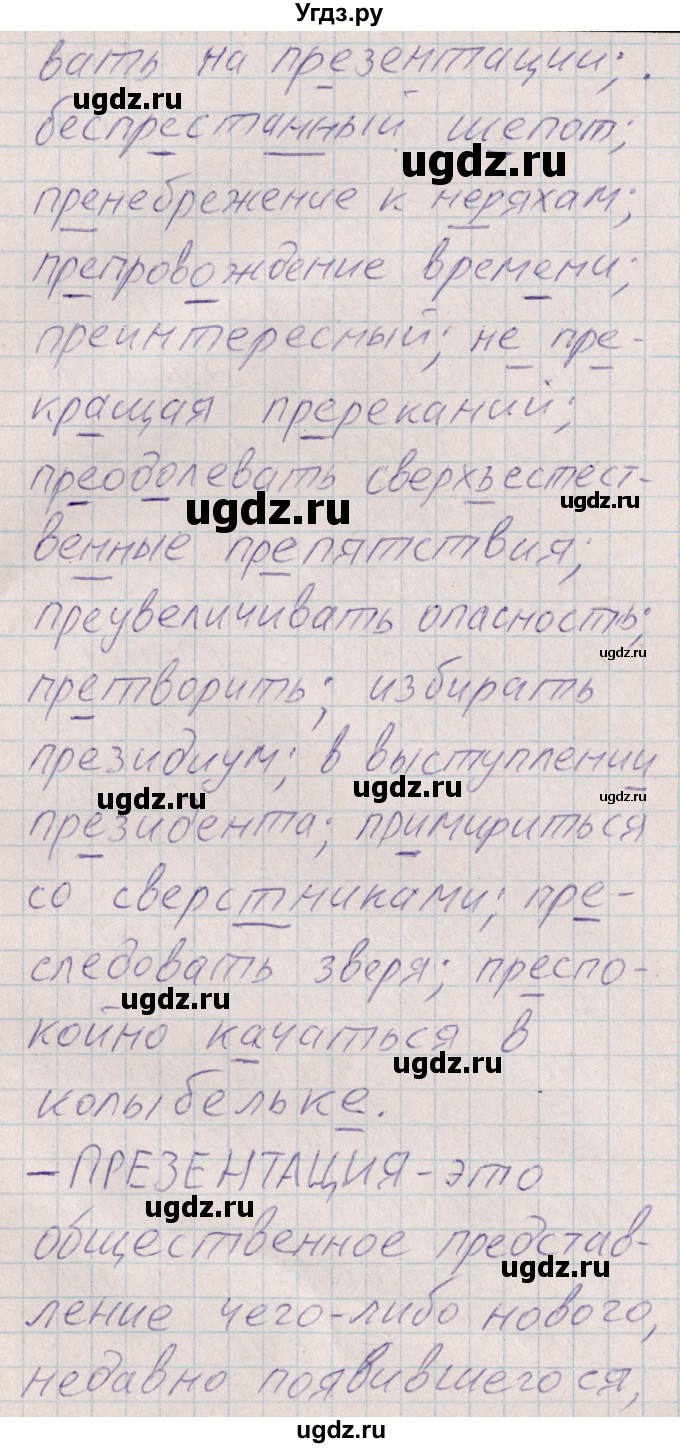 Угдз.ру
вать на презентации;
ugdz.ru
беспрестанный шепот;
ugdz.ru
пренебрежение к неряхам;
препровождение времени;
преинтересный; не пре-
кращая пререканий;
преодолевать сверхъестест-
ugdz.ru
ugdz.ru
венные препятствия;
преувеличивать опасность;
ugdz.ru
претворить; избирать
президиум; в выступлении
ugdz.ru
ugdz.ru
ugdz.ru
президента; примириться
со сверстниками; пре-
следовать зверя; преспо-
ugdz.ru
койно качаться в
ugdz.ru
колыбельке.
– ПРЕЗЕНТАЦИЯ - это
ugdz.ru
общественное представ-
ugdz.ru
ление чего-либо нового,
недавно появившегося,
ugdz.ru